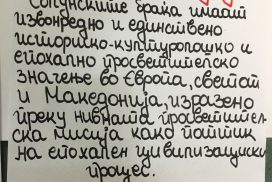 Солунските браќа имаат
извонредно и единствено
историско-културолошко и
епохално просветителско
значење во Европа, светот
и Македонија, изразено
преку нивната просветител-
ска мисија како поттик
на епохален цивилизациски
процес.